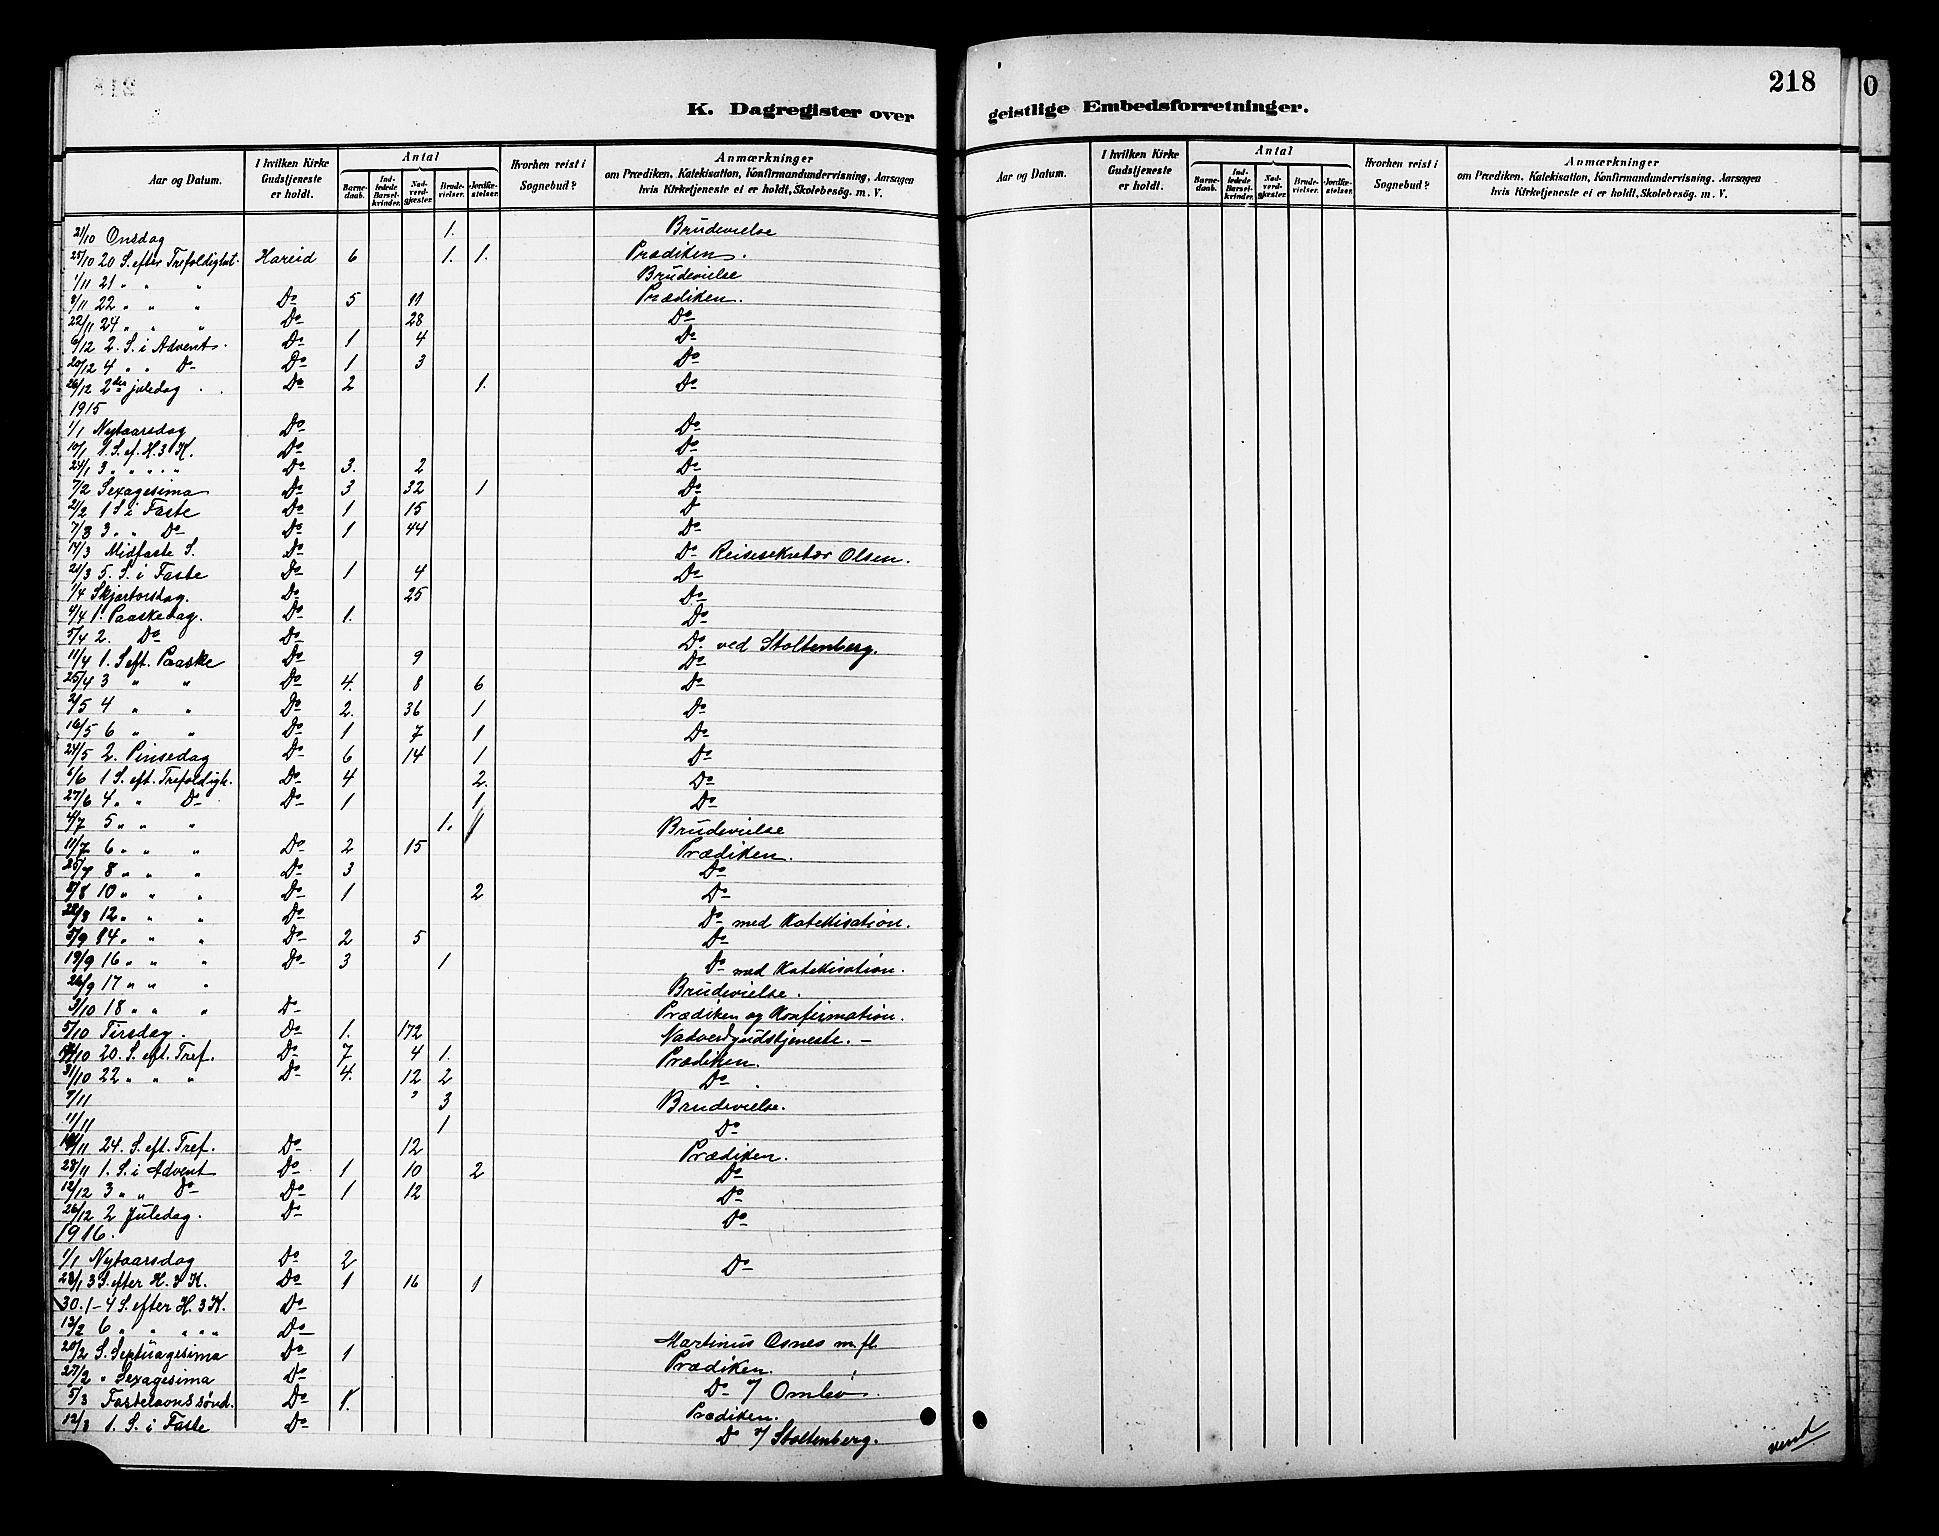 218
K. Dagregister over
geistlige Embedsforretninger.
Aar og Datum. I hvilken Kirke Gudstjeneste er holdt. Antal Barnedaab. Indledede Barselkvinder. Nadverdgjester. Brudevielser. Jordfæstelser. Hvorhen reist i Sognebud? Anmærkninger om Prædiken, Katekisation, Konfirmandundervisning, Aarsagen hvis Kirketjeneste ei er holdt, Skolebesøg. m. V.
21/10 Onsdag 1. Brudevielse
25/10 20 S. efter Trefoldighet. Hareid 6 1. 1. Prædiken.
1/11 21 " " " Brudevielse
8/11 22 " " " Do 5 11 Prædiken.
22/11 24 " " " Do 28 Do
6/12 2. S. i Advent. Do 1 4 Do
20/12 4 " " Do Do 1 3 Do
26/12 2den juledag Do 2 1. Do
1915
1/1 Nytaarsdag Do Do
10/1 1 S. ef. H. 3 K. Do Do
24/1 3 " " " " Do 3. 2 Do
7/2 Sexagesima Do 3 32 1 Do
21/2 1 S i Faste Do 1 15 D
7/3 3 " " Do Do 1 44 Do
14/3 Midfaste S. Do Do Reisesekretær Olsen.
21/3 5. S. i Faste Do 1 4 Do
1/4 Skjærtorsdag. Do 25 Do
4/4 1. Paaskedag. Do 1. Do
5/4 2. Do Do Do ved Stoltenberg.
11/4 1. S eft. Paaske Do 9 Do
25/4 3 " " Do 4. 8 6 Do
2/5 4 " " Do 2. 36 1 Do
16/5 6 " " Do 1 7 1 Do
24/5 2. Pinsedag Do 6 14 1 Do
6/6 1 S. eft. Trefoldigh. Do 4 2. Do
27/6 4 " " Do Do 1 1 Do
4/7 5 " " " 1. 1 Brudevielse
11/7 6 " " " Do 2 15 Prædiken.
25/7 8 " " " Do 3 Do
8/8 10 " " " Do 1 2 Do
22/8 12 " " " Do Do med Katekisation.
5/9 14 " " " Do 2 5 Do
19/9 16 " " " Do 3 1 Do med Katekisation.
26/9 17 " " " Brudevielse.
3/10 18 " " " Do Prædiken og Konfirmation.
5/10 Tirsdag. Do 1. 172 Nadverdgudstjeneste. —
/10 20. S. eft. Tref. Do 7 4 1. Prædiken.
31/10 22 " " " Do 4. 12 2 Do
7/11 3 Brudevielse.
11/11 1 Do
14/11 24. S. eft. Tref. Do 12 Prædiken.
28/11 1. S. i Advent Do 1 10 2 Do
12/12 3 " " Do Do 1 12 Do
26/12 2 Juledag. Do Do
1916.
1/1 Nytaarsdag Do 2 Do
23/1 3 S. efter H. 3 K. Do 1 16 1
30.1 - 4 S. efter H. 3 K. Do
13/2 6 " " " " " Do
20/2 S. Septuagesima Do 1 Martinus Osnes m. fl.
27/2 " Sexagesima Do Prædiken.
5/3 Fastelavnssønd. Do 1. Do v/ Omlid.
12/3 1. S. i Faste Do Prædiken.
Do v/ Stoltenberg.
Aar og Datum. I hvilken Kirke Gudstjeneste er holdt. Antal Barnedaab. Indledede Barselkvinder. Nadverdgjester. Brudevielser. Jordfæstelser. Hvorhen reist i Sognebud? Anmærkninger om Prædiken, Katekisation, Konfirmandundervisning, Aarsagen hvis Kirketjeneste ei er holdt, Skolebesøg. m. V.
vend